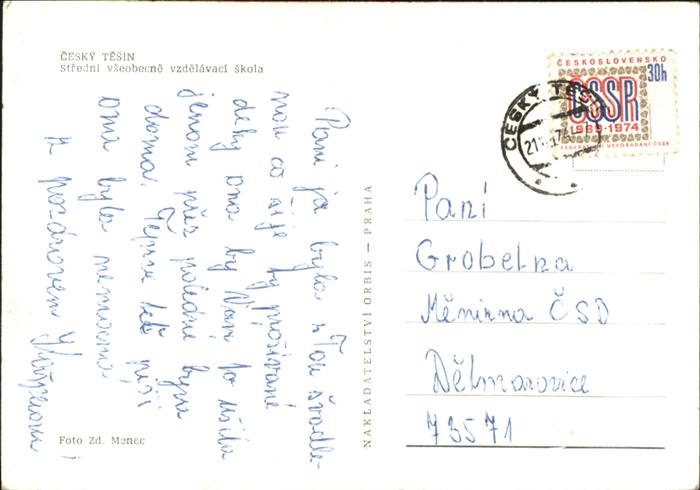 ČESKÝ TĚŠÍN
Střední všeobecně vzdělávací škola
Paní já byla s Tou švadle-
nou co šije by prošívané
deky ona by Vám to ušila
jenom přes poledne byla
doma. Teprve teď píši
ona byla nemocná
z pozdravem
Foto Zd. Menec
NAKLADATELSTVÍ ORBIS — PRAHA
ČESKOSLOVENSKO
30h
ČSSR
1969·1974
FEDERATIVNÍ USPOŘÁDÁNÍ ČSSR
ČESKÝ TĚŠ
Paní
Grobelna
Měnírna ČSD
Dětmarovice
73571